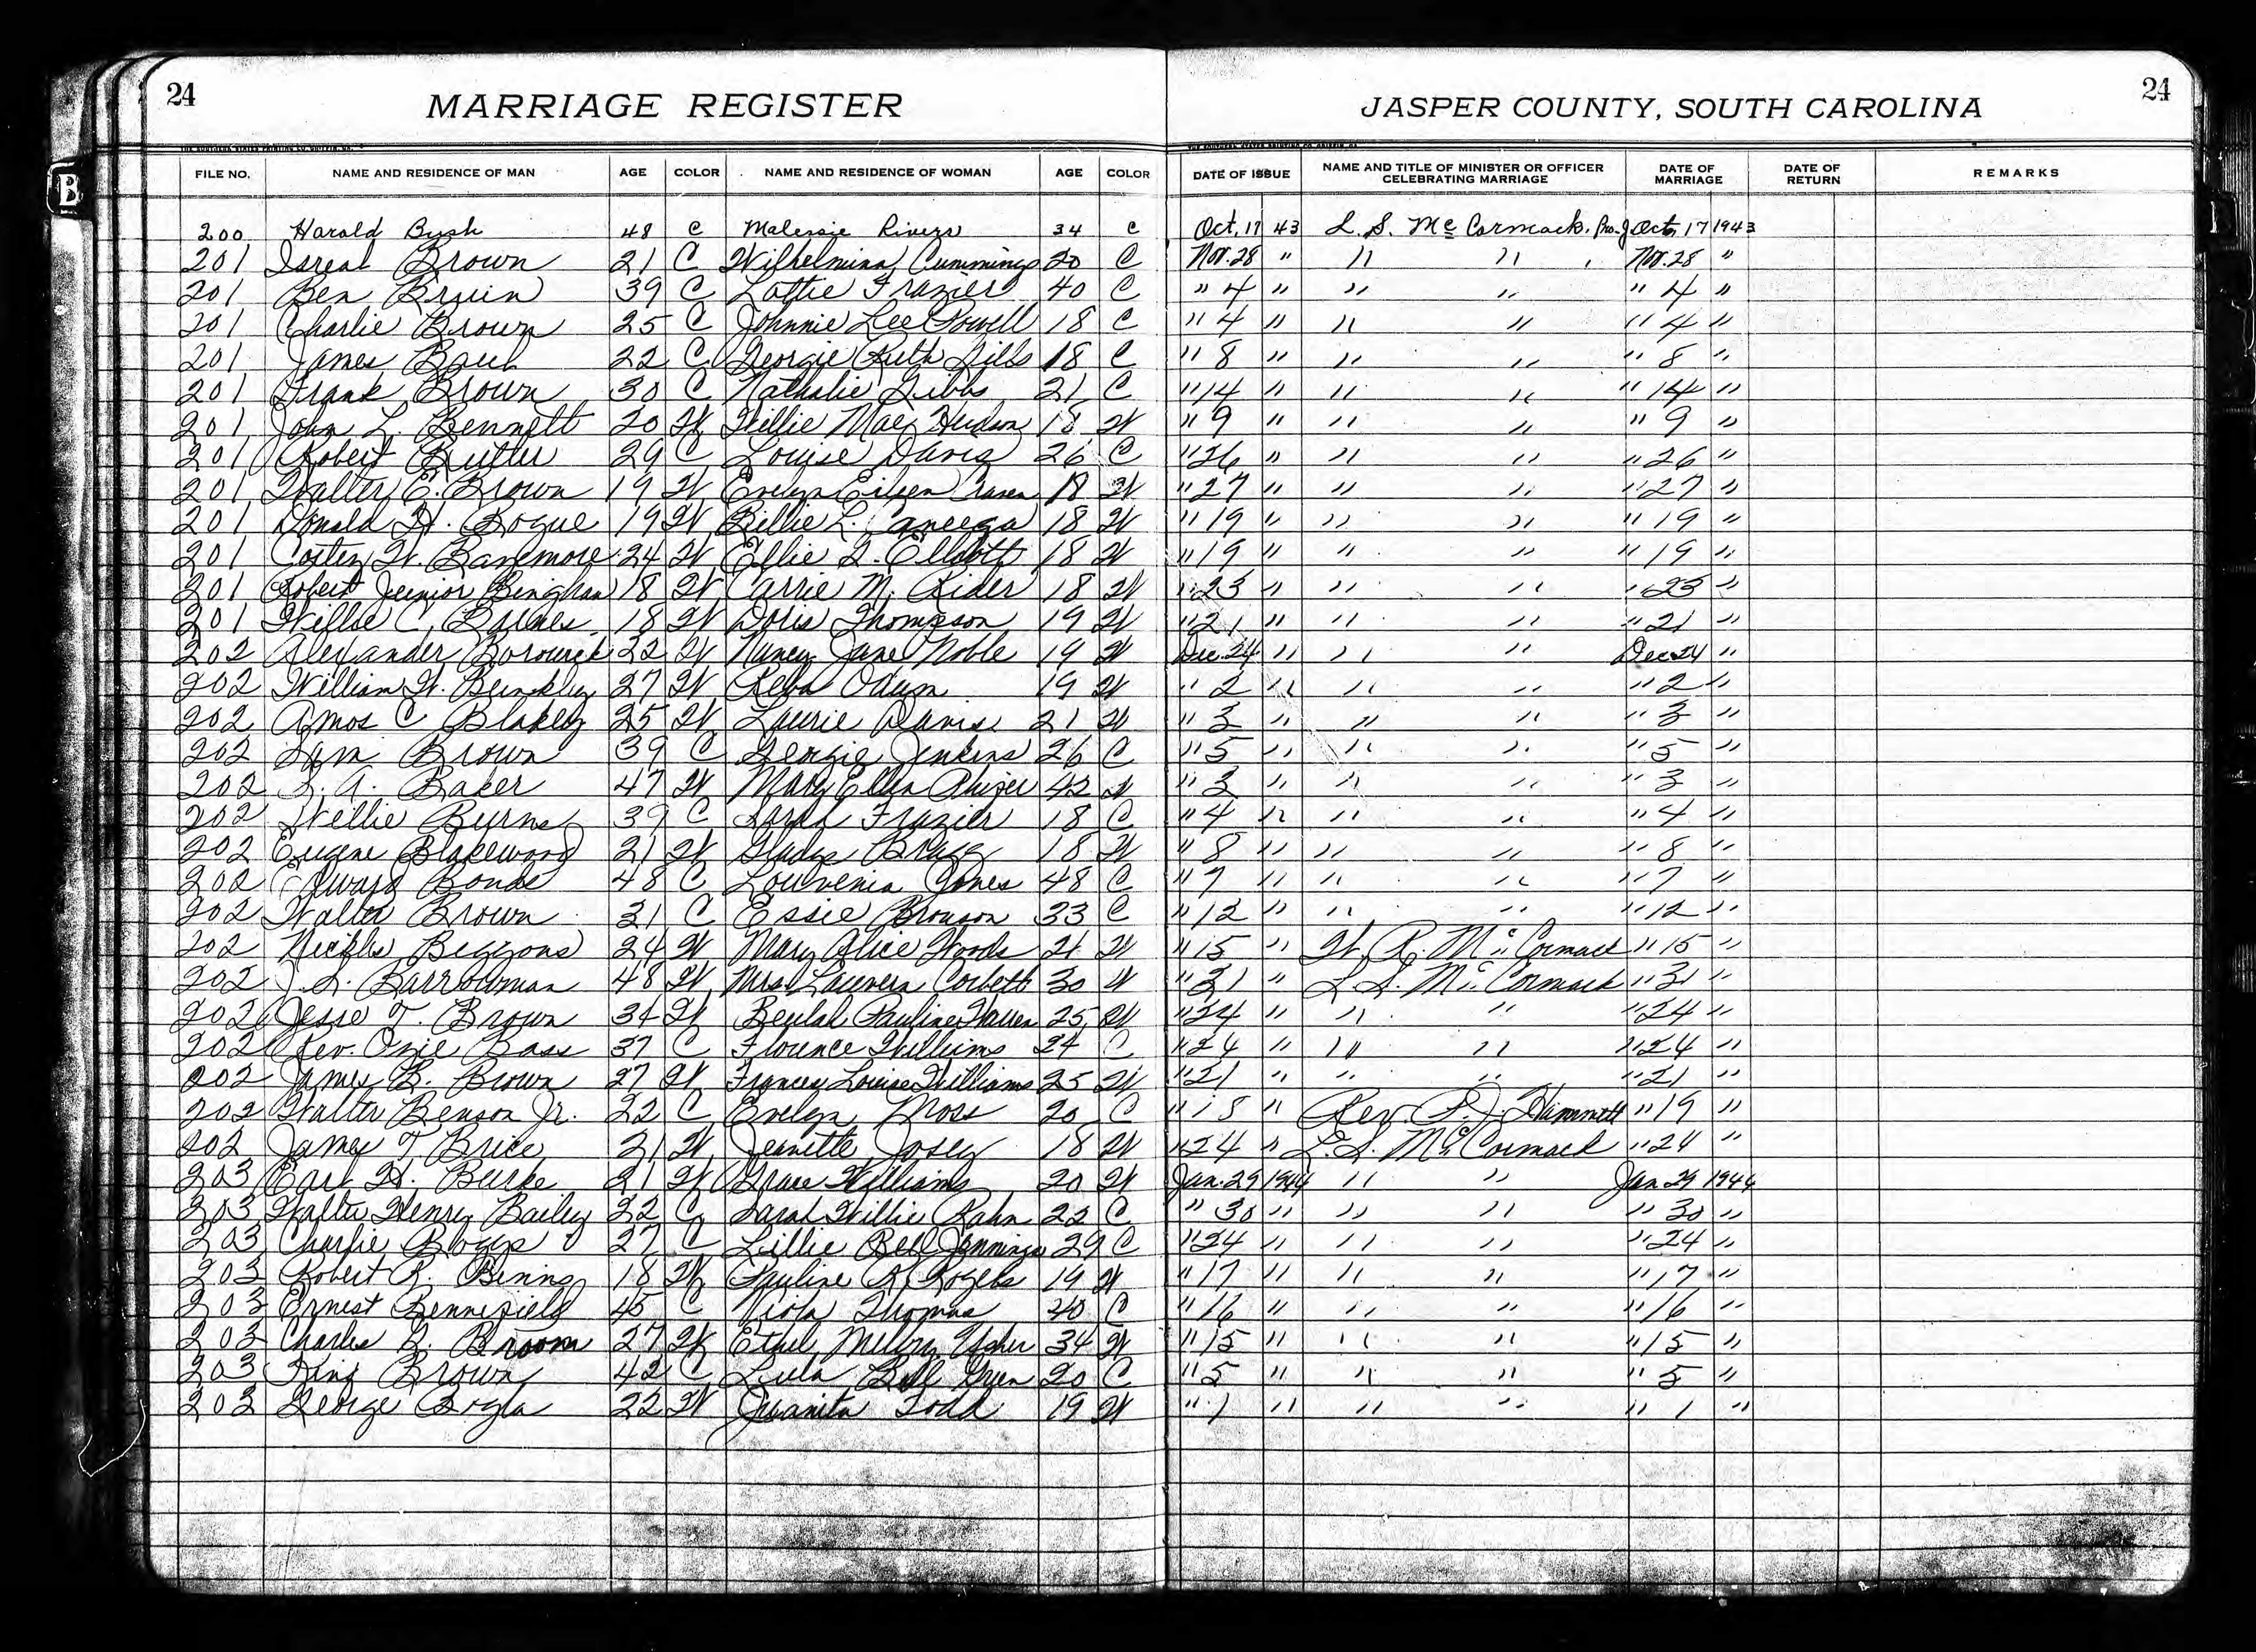 24 MARRIAGE REGISTER JASPER COUNTY, SOUTH CAROLINA 24
B
FILE NO. NAME AND RESIDENCE OF MAN AGE COLOR NAME AND RESIDENCE OF WOMAN AGE COLOR DATE OF ISSUE NAME AND TITLE OF MINISTER OR OFFICER CELEBRATING MARRIAGE DATE OF MARRIAGE DATE OF RETURN REMARKS
200 Harold Bush 48 C Malessie Rivers 34 C Oct. 17 43 L. S. McCormack, Pro. J Oct. 17 1943
201 Isreal Brown 21 C Wilhelmina Cummings 20 C Nov. 28 " " " Nov. 28 "
201 Ben 39 C Lottie Frazier 40 C " 4 " " " " 4 "
201 Charlie Brown 25 C Johnnie Lee Powell 18 C " 4 " " " " 4 "
201 James 22 C Georgie Ruth 18 C " 8 " " " " 8 "
201 Frank Brown 30 C Nathalie Gibbs 21 C " 14 " " " " 14 "
201 John L. Bennett 20 W Willie Mae Hudson 18 W " 9 " " " " 9 "
201 Robert Butler 29 C Louise Davis 26 C " 26 " " " " 26 "
201 Walter E. Brown 19 W Evelyn 18 W " 27 " " " " 27 "
201 Donald H. Bogue 19 W Billie L. 18 W " 19 " " " " 19 "
201 W. 24 W Effie Elliott 18 W " 19 " " " " 19 "
201 Robert Junior Bingham 18 W Carrie M. Rider 18 W " 23 " " " " 23 "
201 Willie C. Barnes 18 W Doris Thompson 19 W " 21 " " " " 21 "
202 Alexander 22 W Nancy Jane Noble 19 W Dec. 24 " " " Dec. 24 "
202 William W. Binkley 27 W Reba Odum 19 W " 2 " " " " 2 "
202 Amos C Blakely 25 W Laurie Davis 21 W " 3 " " " " 3 "
202 Sam Brown 39 C Georgie Jenkins 26 C " 5 " " " " 5 "
202 A. Baker 47 W Mary Ellen 42 W " 3 " " " " 3 "
202 Willie Burns 39 C Sarah Frazier 18 C " 4 " " " " 4 "
202 Eugene Blakewood 21 W Gladys Bragg 18 W " 8 " " " " 8 "
202 Edward Bonds 48 C Louvenia Jones 48 C " 7 " " " " 7 "
202 Walter Brown 31 C Essie Bronson 33 C " 12 " " " " 12 "
202 24 W Mary Alice Woods 21 W " 15 " W. R. McCormack " 15 "
202 J. L. Barrowman 48 W Mrs. Lauvera Corbett 30 W " 31 " L. S. McCormack " 31 "
202 Jesse T. Brown 34 W Beulah Pauline Warren 25 W " 24 " " " " 24 "
202 Rev. Ozie Bass 37 C Florence Williams 24 C " 24 " " " " 24 "
202 James B. Brown 27 W Frances Louise Williams 25 W " 21 " " " " 21 "
202 Walter Benson Jr. 22 C Evelyn Moss 20 C " 18 " Rev. P. J. " 19 "
202 James T Brice 21 W Jeanette Josey 18 W " 24 " L. S. McCormack " 24 "
203 Earl H. Burke 21 W Grace Williams 20 W Jan. 29 1944 " " Jan 29 1944
203 Walter Henry Bailey 22 C Sarah Willie Rahn 22 C " 30 " " " " 30 "
203 Charlie Boggs 27 C Lillie Bell Jennings 29 C " 24 " " " " 24 "
203 Robert R. Bining 18 W Pauline R. Rogers 19 W " 17 " " " " 17 "
203 Ernest Bennefield 45 C Viola Thomas 40 C " 16 " " " " 16 "
203 Charles B. Broom 27 W Ethel Usher 34 W " 15 " " " " 15 "
203 King Brown 42 C Lula Bell Green 20 C " 5 " " " " 5 "
203 George 22 W Juanita Todd 19 W " 1 " " " " 1 "